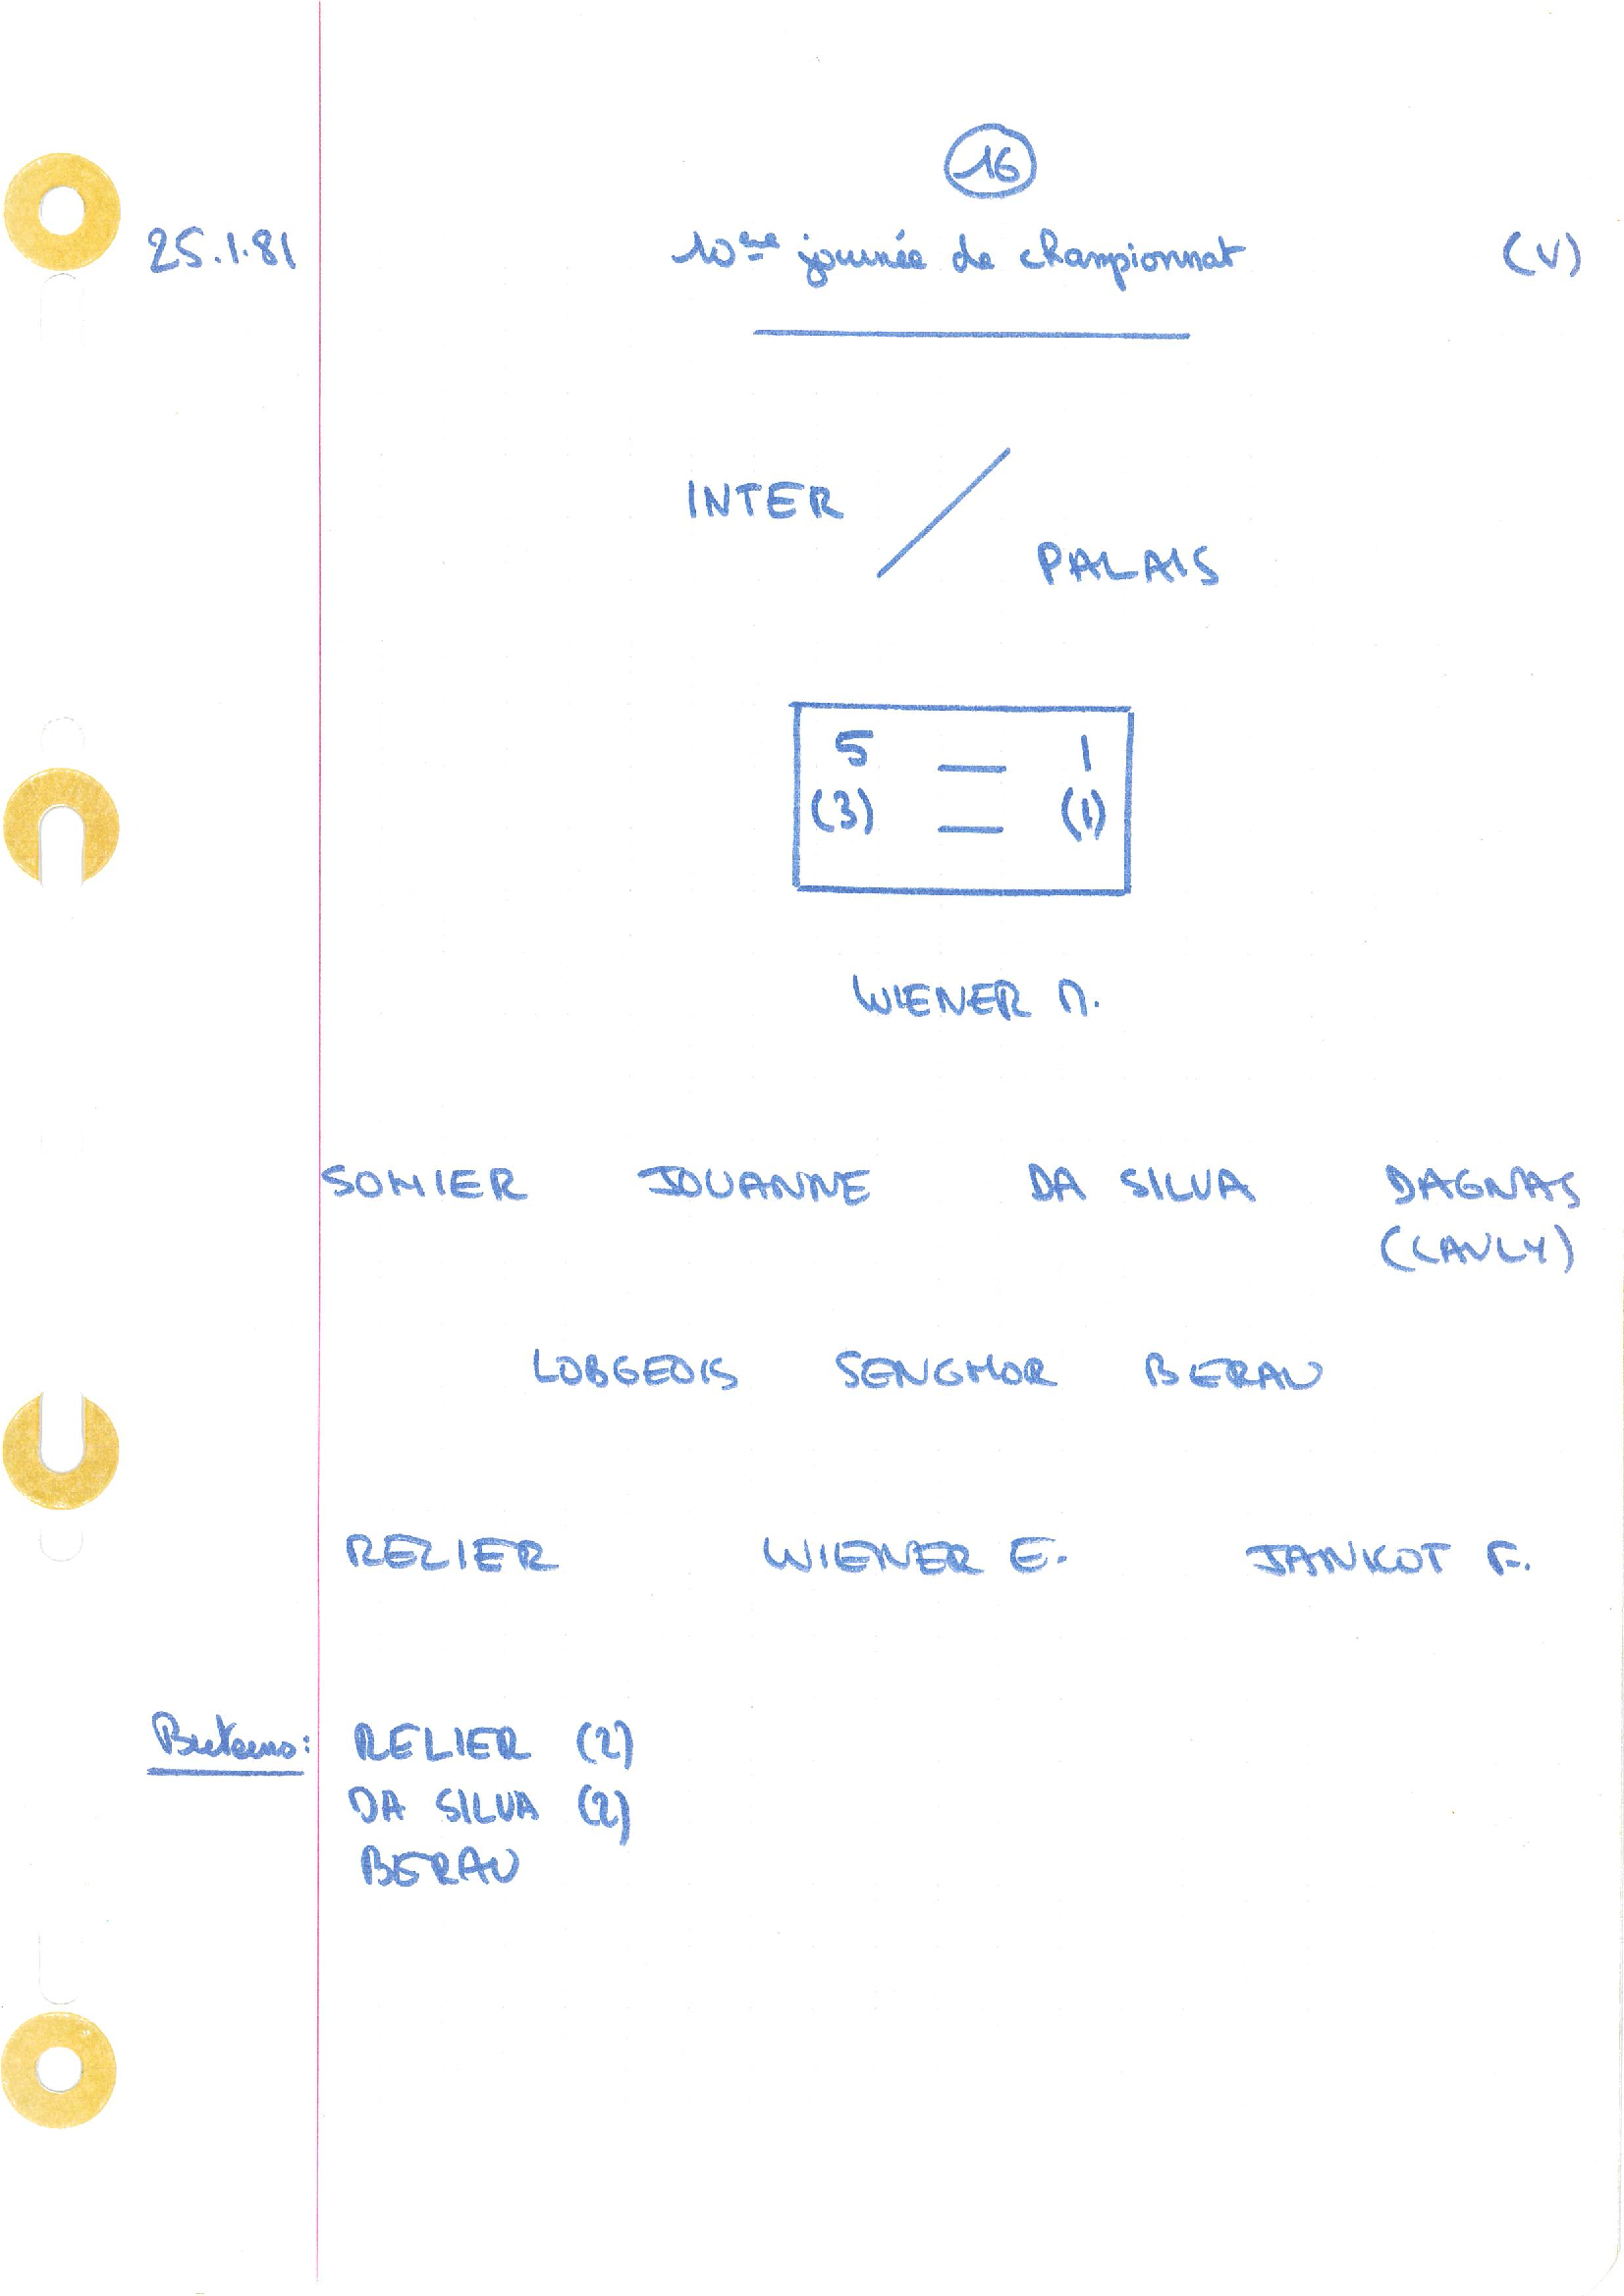 16
25.1.81 10ème journée de championnat (V)
INTER / PALAIS
5 — 1
(3) — (1)
WIENER M.
SOMIER JOUANNE DA SILVA DAGNAS
(LAVLY)
LOBGEOIS SENGHOR BERAU
RELIER WIENER E. JANKOT F.
Buteurs: RELIER (2)
DA SILVA (2)
BERAU